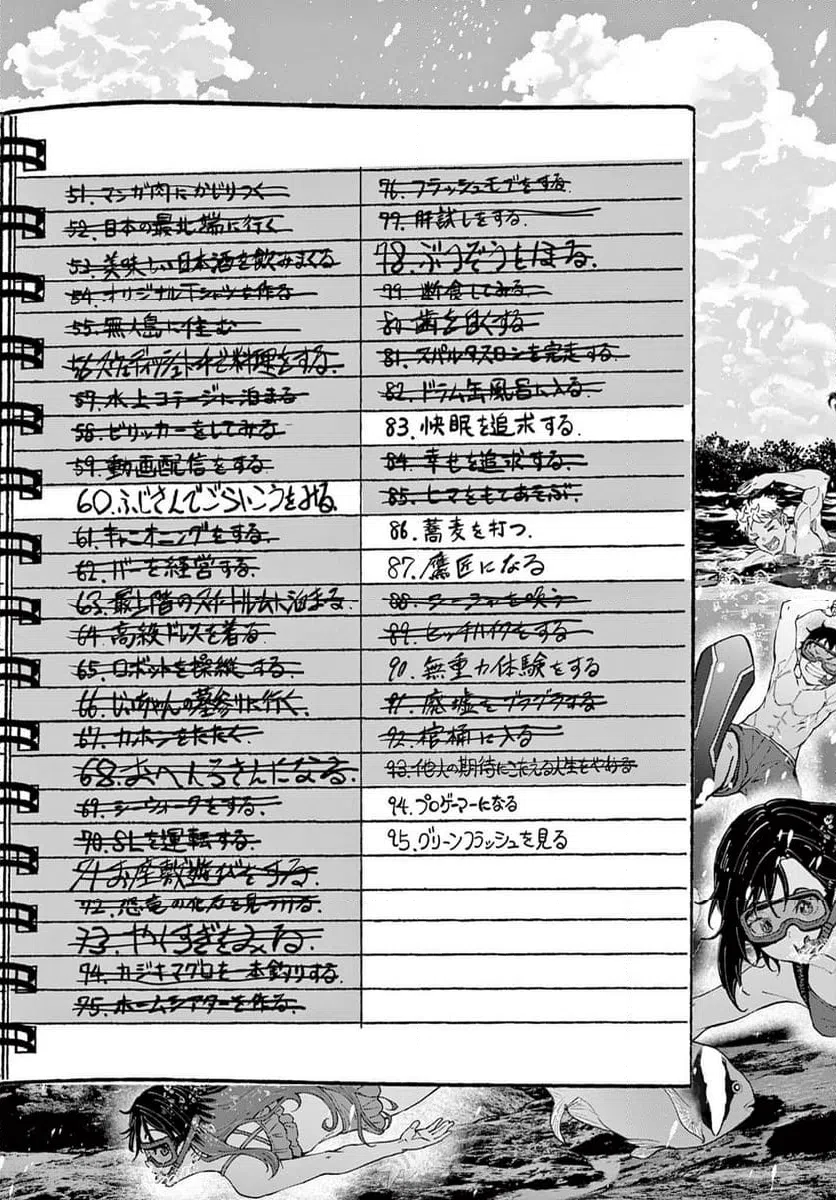 51. マンガ肉にかじりつく
52. 日本の最北端に行く
53. 美味しい日本酒を飲みまくる
54. オリジナルTシャツを作る
55. 無人島に住む
56. スウェーディッシュトーチで料理をする
57. 水上コテージに泊まる
58. ビリッカーをしてみる
59. 動画配信をする
60. ふじさんでごらいこうをみる
61. キャニオニングをする
62. バーを経営する
63. 最上階のスイートルームに泊まる
64. 高級ドレスを着る
65. ロボットを操縦する
66. じいちゃんの墓参りに行く
67. カホンをたたく
68. おへんろさんになる
69. シーウォークをする
70. SLを運転する
71. お座敷遊びをする
72. 恐竜の化石を見つける
73. やくすぎをみる
74. カジキマグロを一本釣りする
75. ホームシアターを作る
76. フラッシュモブをする
77. 肝試しをする
78. ぶつぞうをほる
79. 断食してみる
80. 歯を白くする
81. スパルタスロンを完走する
82. ドラム缶風呂に入る
83. 快眠を追求する
84. 幸せを追求する
85. ヒマをもてあそぶ
86. 蕎麦を打つ
87. 鷹匠になる
88. シーシャを吸う
89. ヒッチハイクをする
90. 無重力体験をする
91. 廃墟をブラブラする
92. 棺桶に入る
93. 他人の期待にこたえる人生をやめる
94. プロゲーマーになる
95. グリーンフラッシュを見る